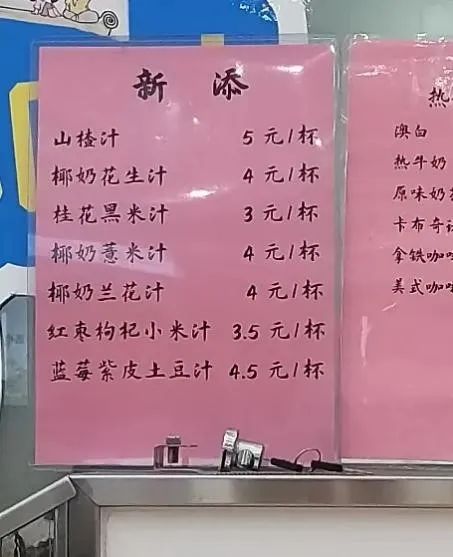 新添
山楂汁 5元/杯
椰奶花生汁 4元/杯
桂花黑米汁 3元/杯
椰奶薏米汁 4元/杯
椰奶兰花汁 4元/杯
红枣枸杞小米汁 3.5元/杯
蓝莓紫皮土豆汁 4.5元/杯
热
澳白
热牛奶
原味奶
卡布奇
拿铁咖
美式咖